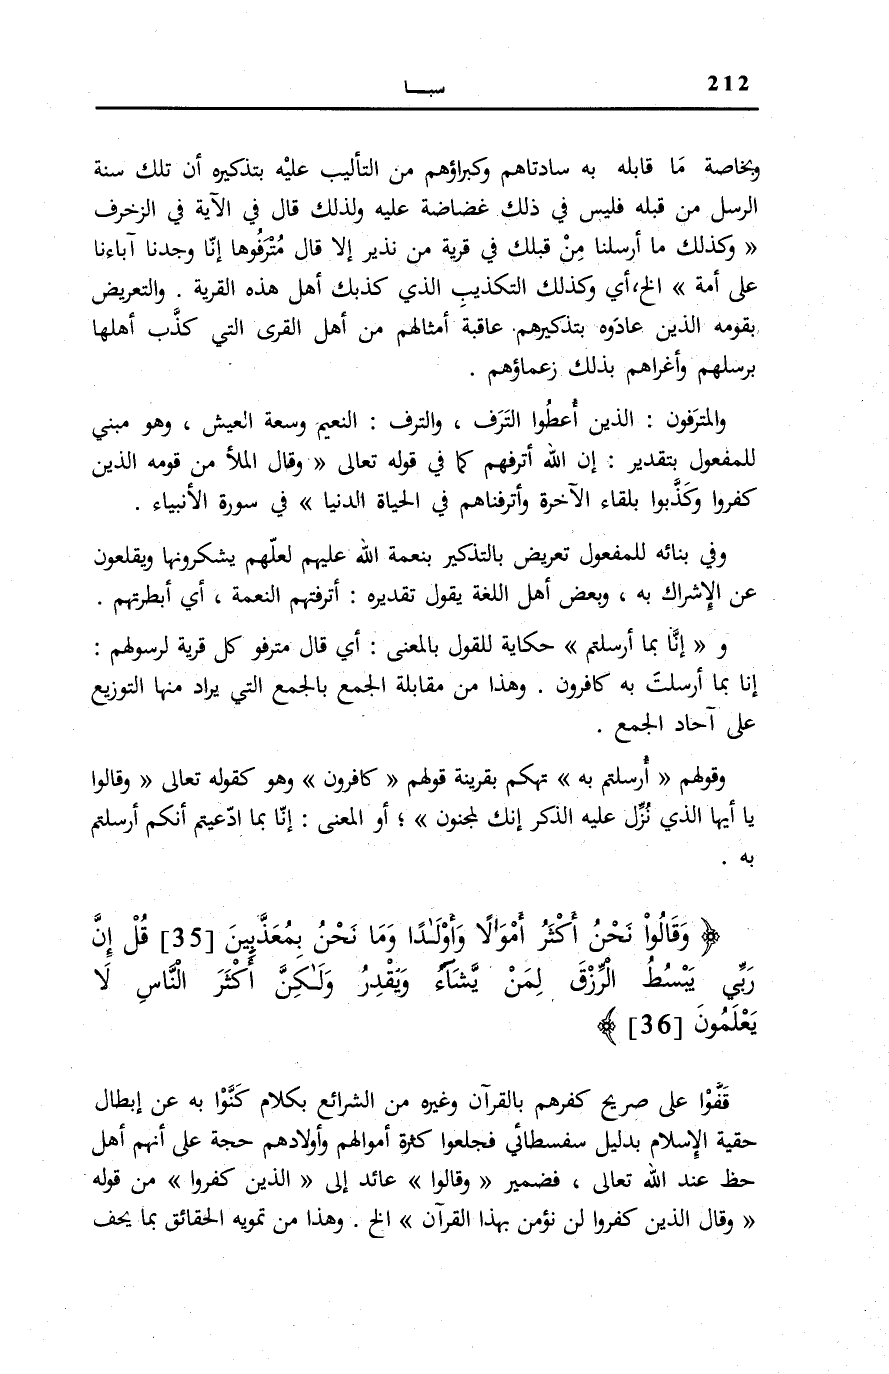 212
سبــا
وبخاصة مَا قابله به سادتاهم وكبراؤهم من التأليب عليْه بتذكيره أن تلك سنة
الرسل من قبله فليس في ذلك غضاضة عليه ولذلك قال في الآية في الزخرف
« وكذلك ما أرسلنا مِنْ قبلك في قرية من نذير إلا قال مُتْرَفُوها إنّا وجدنا آباءنا
على أمة » الخ،أي وكذلك التكذيب الذي كذبك أهل هذه القرية . والتعريض
بقومه الذين عادَوه بتذكيرهم عاقبة أمثالهم من أهل القرى التي كذَّب أهلها
برسلهم وأغراهم بذلك زعماؤهم .
والمترَفون : الذين أُعطُوا التَرَف ، والترف : النعيم وسعة العيش ، وهو مبني
للمفعول بتقدير : إن الله أترفهم كما في قوله تعالى « وقال الملأ من قومه الذين
كفروا وكَذَّبوا بلقاء الآخرة وأترفناهم في الحياة الدنيا » في سورة الأنبياء .
وفي بنائه للمفعول تعريض بالتذكير بنعمة الله عليهم لعلّهم يشكرونها ويقلعون
عن الإشراك به ، وبعض أهل اللغة يقول تقديره : أترفتهم النعمة ، أي أبطرتهم .
و « إنَّا بما أرسلتم » حكاية للقول بالمعنى : أي قال مترفو كل قرية لرسولهم :
إنا بما أرسلتَ به كافرون . وهذا من مقابلة الجمع بالجمع التي يراد منها التوزيع
على آحاد الجمع .
وقولهم « أُرسلتم به » تهكم بقرينة قولهم « كافرون » وهو كقوله تعالى « وقالوا
يا أيها الذي نُزِّل عليه الذكر إنك لمجنون » ؛ أو المعنى : إنّا بما ادّعيتم أنكم أرسلتم
به .
﴿ وَقَالُواْ نَحْنُ أَكْثَرُ أَمْوَٰلًا وَأَوْلَـٰدًا وَمَا نَحْنُ بِمُعَذَّبِينَ [35] قُلْ إِنَّ
رَبِّي يَبْسُطُ الْرِّزْقَ لِمَنْ يَّشَآءُ وَيَقْدِرُ وَلَـٰكِنَّ أَكْثَرَ الْنَّاسِ لَا
يَعْلَمُونَ [36] ﴾
قَفَّوْا على صريح كفرهم بالقرآن وغيره من الشرائع بكلام كَنَّوْا به عن إبطال
حقية الإسلام بدليل سفسطائي فجلعوا كثرة أموالهم وأولادهم حجة على أنهم أهل
حظ عند الله تعالى ، فضمير « وقالوا » عائد إلى « الذين كفروا » من قوله
« وقال الذين كفروا لن نؤمن بهذا القرآن » الخ . وهذا من تمويه الحقائق بما يحف